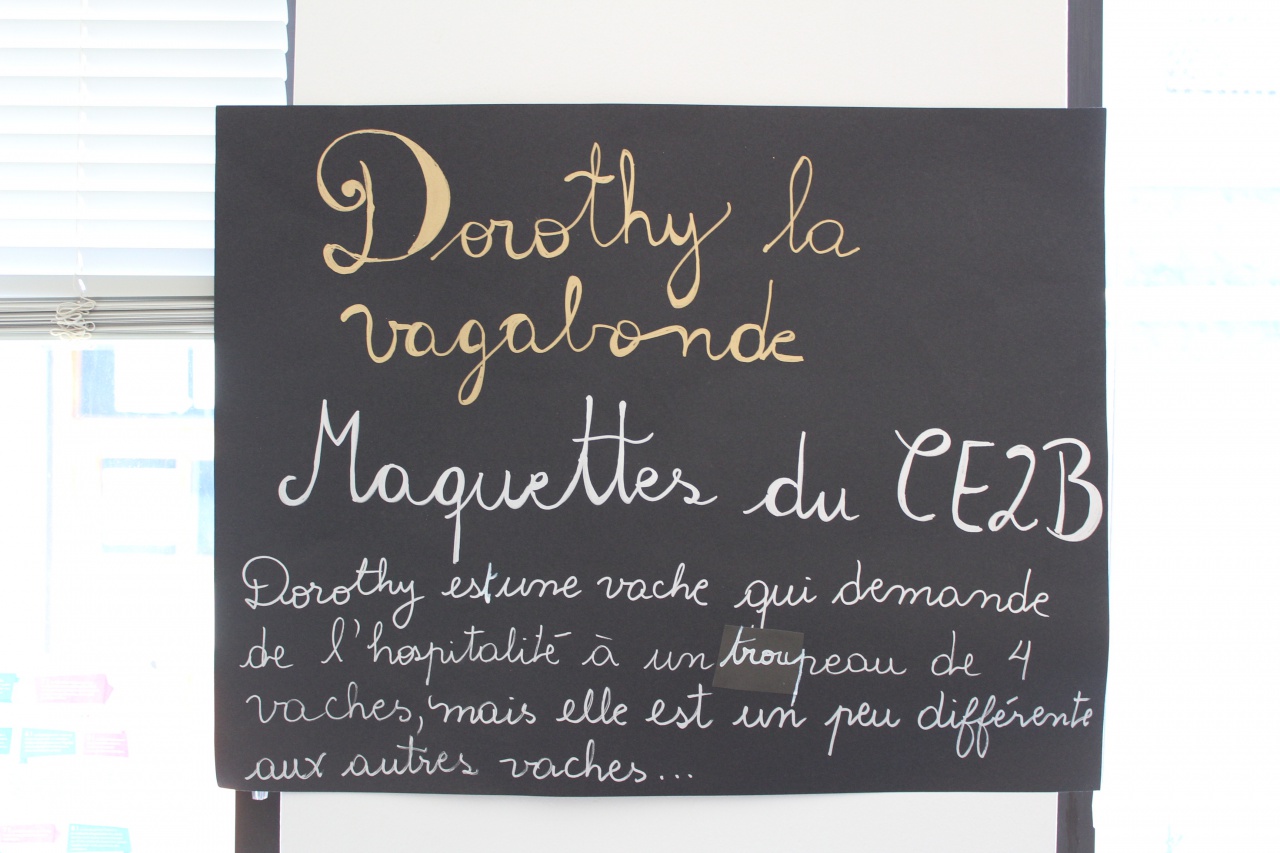 Dorothy la
vagabonde
Maquettes du CE2B
Dorothy est une vache qui demande
de l'hospitalité à un troupeau de 4
vaches, mais elle est un peu différente
aux autres vaches...